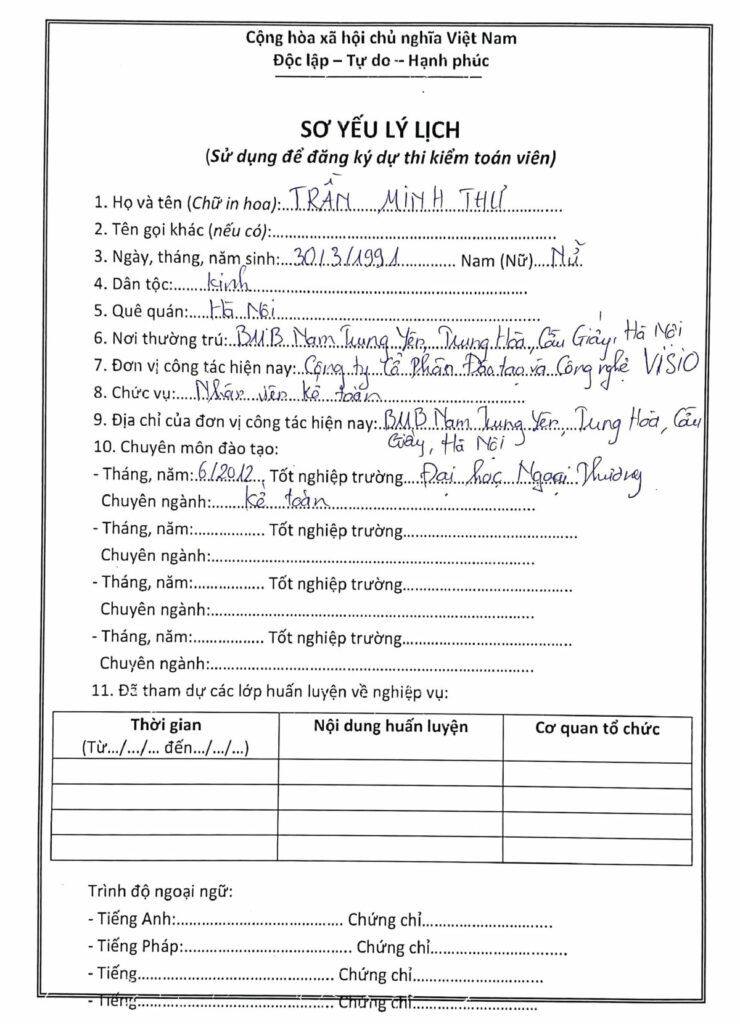 Cộng hòa xã hội chủ nghĩa Việt Nam
Độc lập – Tự do -- Hạnh phúc
SƠ YẾU LÝ LỊCH
(Sử dụng để đăng ký dự thi kiểm toán viên)
1. Họ và tên (Chữ in hoa):...TRẦN MINH THƯ
2. Tên gọi khác (nếu có):..........
3. Ngày, tháng, năm sinh:...30/3/1991.......... Nam (Nữ)....Nữ.
4. Dân tộc:......Kinh..........
5. Quê quán:......Hà Nội..........
6. Nơi thường trú:...B11B Nam Trung Yên, Trung Hoà, Cầu Giấy, Hà Nội
7. Đơn vị công tác hiện nay:...Công ty Cổ Phần Đào tạo và Công nghệ VISIO
8. Chức vụ:......Nhân viên kế toán..........
9. Địa chỉ của đơn vị công tác hiện nay:..B11B Nam Trung Yên, Trung Hoà, Cầu
Giấy, Hà Nội
10. Chuyên môn đào tạo:
- Tháng, năm:.6/2012... Tốt nghiệp trường....Đại học Ngoại Thương
Chuyên ngành:......Kế toán..........
- Tháng, năm:................ Tốt nghiệp trường..........
Chuyên ngành:..........
- Tháng, năm:............... Tốt nghiệp trường..........
Chuyên ngành:..........
- Tháng, năm:............... Tốt nghiệp trường..........
Chuyên ngành:..........
11. Đã tham dự các lớp huấn luyện về nghiệp vụ:
Thời gian Nội dung huấn luyện Cơ quan tổ chức
(Từ.../.../... đến.../.../...)
Trình độ ngoại ngữ:
- Tiếng Anh:.................................... Chứng chỉ............................
- Tiếng Pháp:.................................... Chứng chỉ.............................
- Tiếng.......................................... Chứng chỉ............................
- Tiếng.......................................... Chứng chỉ...........................